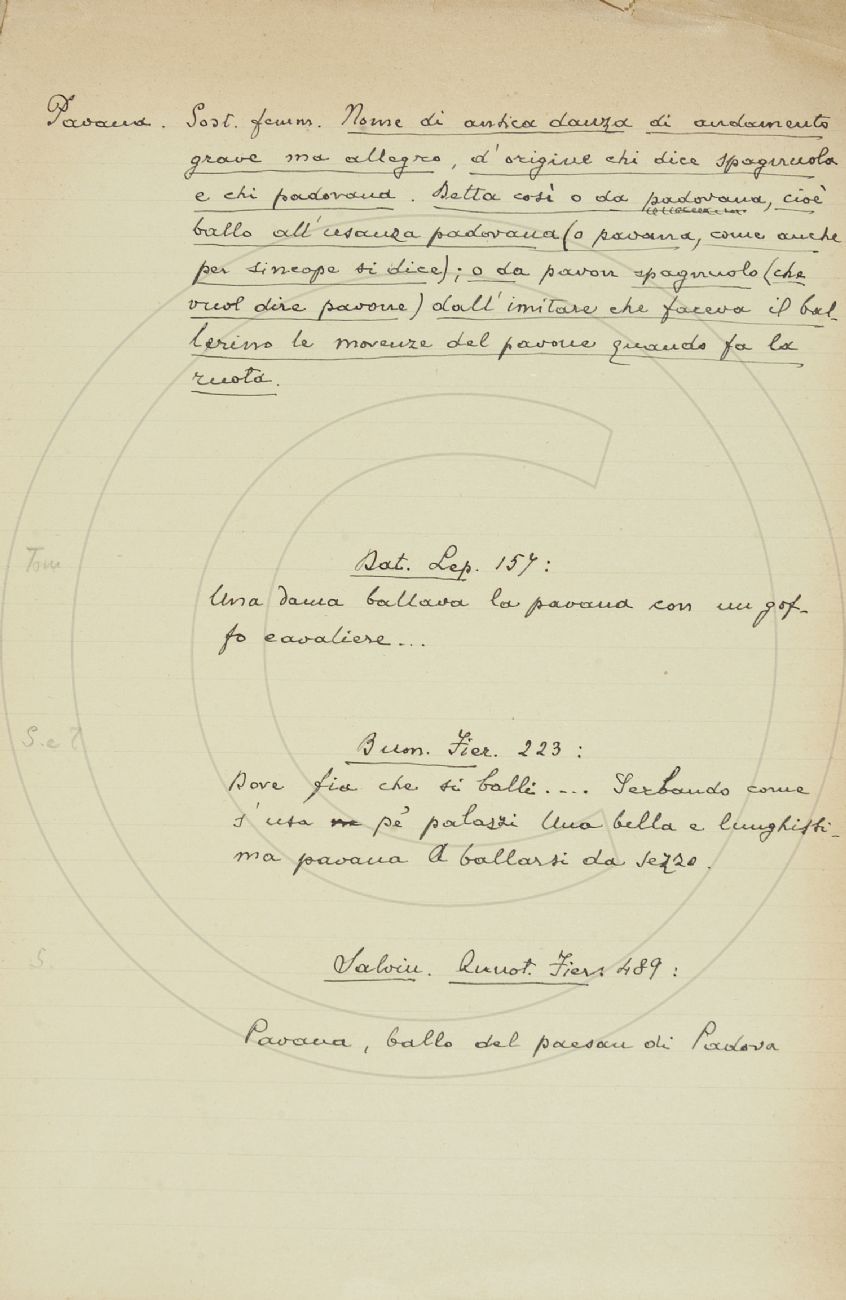 Pavana. Sost. femm. Nome di antica danza di andamento
grave ma allegro, d'origine chi dice spagnuola
e chi padovana. Detta così o da padovana, cioè
ballo all'usanza padovana (o pavana, come anche
per sincope si dice); o da pavon spagnuolo (che
vuol dire pavone) dall'imitare che faceva il bal-
lerino le movenze del pavone quando fa la
ruota.
Tom
Dat. Lep. 157:
Una dama ballava la pavana con un gof-
fo cavaliere...
S. e T
Buon. Fier. 223:
Dove fia che si balli.... Serbando come
s'usa ne pe' palazzi Una bella e lunghissi-
ma pavana A ballarsi da sezzo.
S.
Salvin. Annot. Fier. 489:
Pavana, ballo del paesan di Padova